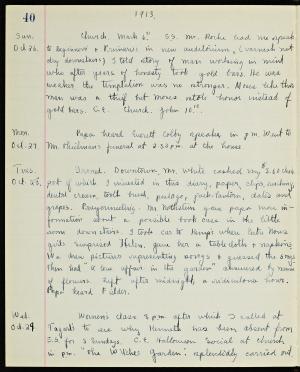 40
1913.
Sun. Church, Mark 6th S.S. Mr. Roche had me speak
Oct. 26. to Beginners & Primaries in new auditorium, (varnish not
dry downstairs) I told story of man working in mint
who after years of honesty took gold bars. He was
weaker the temptation was no stronger. Moses like this
man was a thief but Moses stole honor instead of
gold bars. C.E. Church. John 10th.
Mon. Papa heard Everett Colby speak in p.m. Went to
Oct. 27 Mr. funeral at 2.30 p.m. at the house.
Tues. Ironed. Downtown. Mr. White cashed my $5.00 check
Oct. 28. part of which I invested in this diary, paper clips, writing
dental cream, tooth brush, postage, dates and
grapes. Mr. gave papa more in-
formation about a possible book case in the little
room downstairs. I took car to Kemps when
girls surprised Helen, gave her a tablecloth & napkins.
We drew pictures representing songs & guessed the songs
then had "a love affair in the garden" answered by names
of flowers. Left after midnight, a ridiculous hour.
Papa heard Fielder.
Wed. Women's class 3 p.m. after which I called at
Oct. 29 to see why Kenneth has been absent from
S.S. for 3 Sundays. C.E. Halloween Social at church
in p.m. "The Witches Garden", splendidly carried out